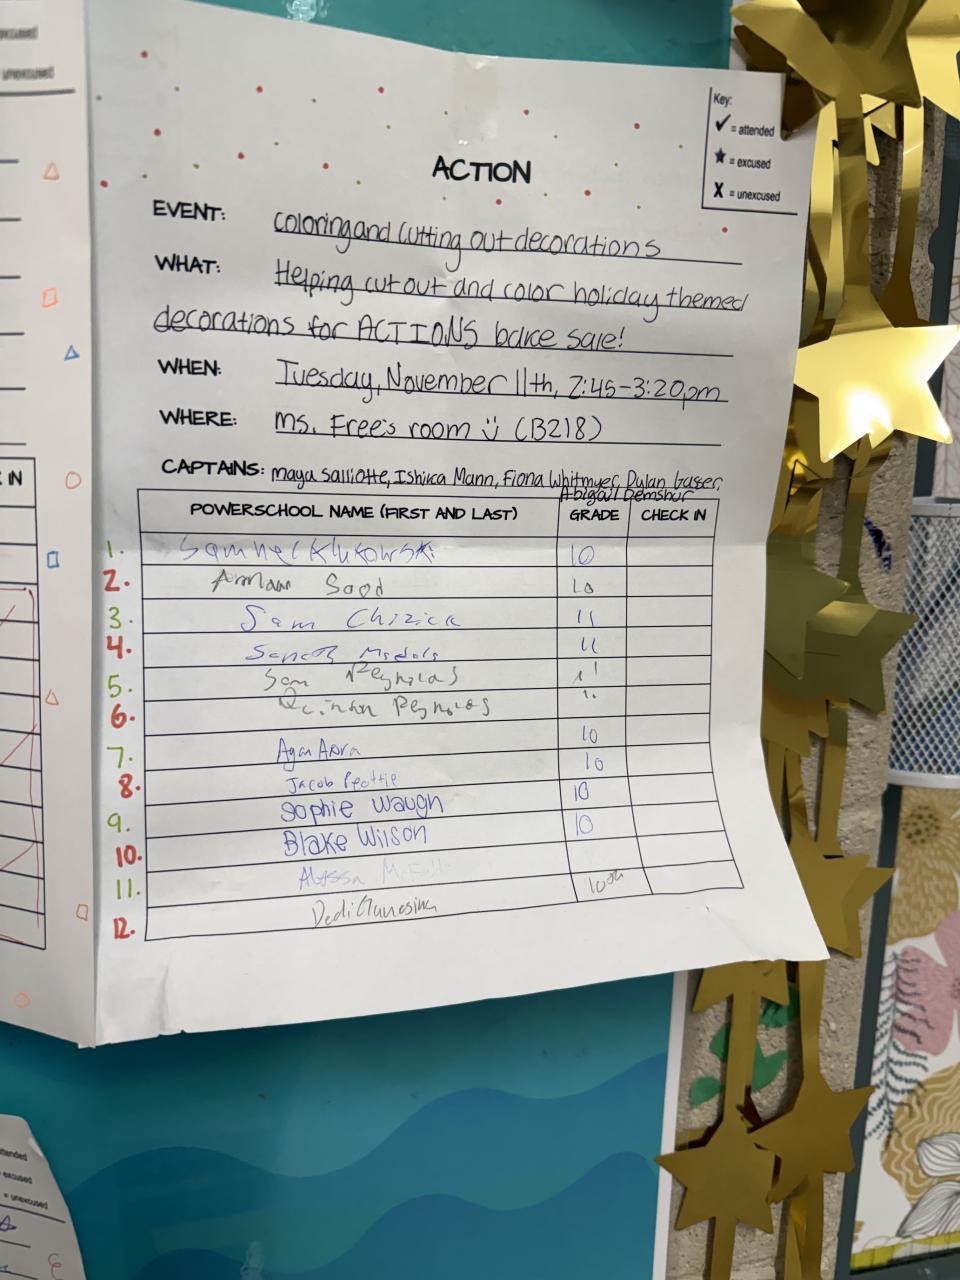 excused
unexcused
Key:
✓ = attended
★ = excused
X = unexcused
ACTION
EVENT: coloring and cutting out decorations
WHAT: Helping cut out and color holiday themed
decorations for ACTIONS bake sale!
WHEN: Tuesday, November 11th, 2:45-3:20pm
WHERE: Ms. Free's room (B218)
CAPTAINS: Maya Salliotte, Ishika Mann, Fiona Whitmyer, Dylan Gasser,
Abigail Demshur
K IN
POWERSCHOOL NAME (FIRST AND LAST) GRADE CHECK IN
1. Samuel Klukowski 10
2. Arman Sood 10
3. Sam Chizick 11
4. 11
5. Sam Reynolds 11
6. Reynolds
7. Arora 10
8. Jacob Beattie 10
9. Sophie Waugh 10
10. Blake Wilson 10
11. Alyssa
12. 10th
attended
excused
= unexcused